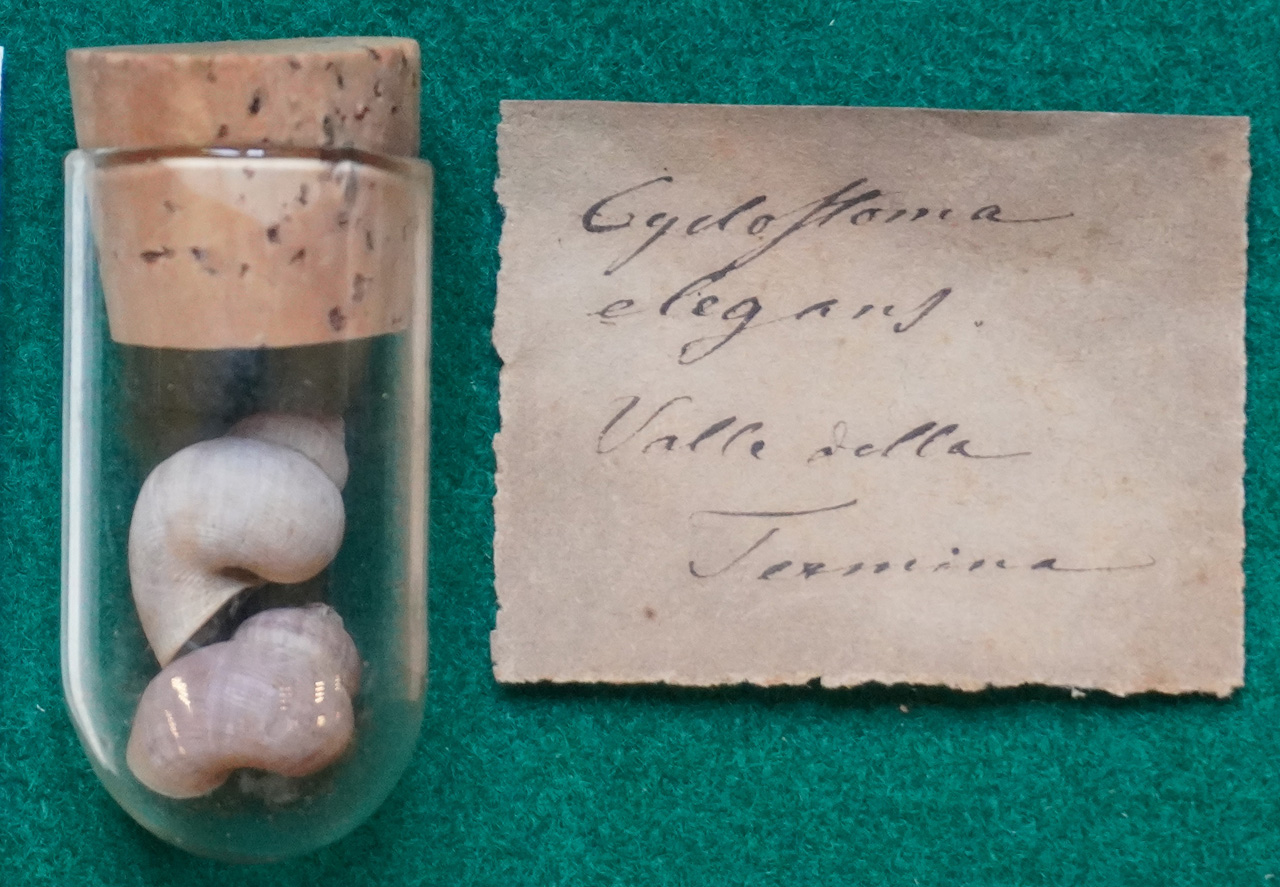 Cyclostoma
elegans.
Valle della
Termina